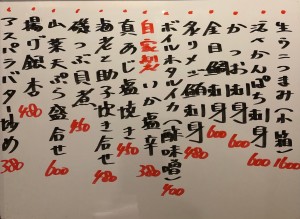 生ウニつまみ(小箱) 1600
活〆かんぱち刺身
かつお刺身 600
金目鯛刺身 600
名リメ鯛刺身 480
ボイルホタルイカ(酢味噌) 400
自家製いか塩辛 380
真あじ塩焼き 450
海老と助子炊き合せ 480
磯つぶ貝煮 450
山菜天ぷら盛合せ 600
揚げ銀杏 480
アスパラバター炒め 380